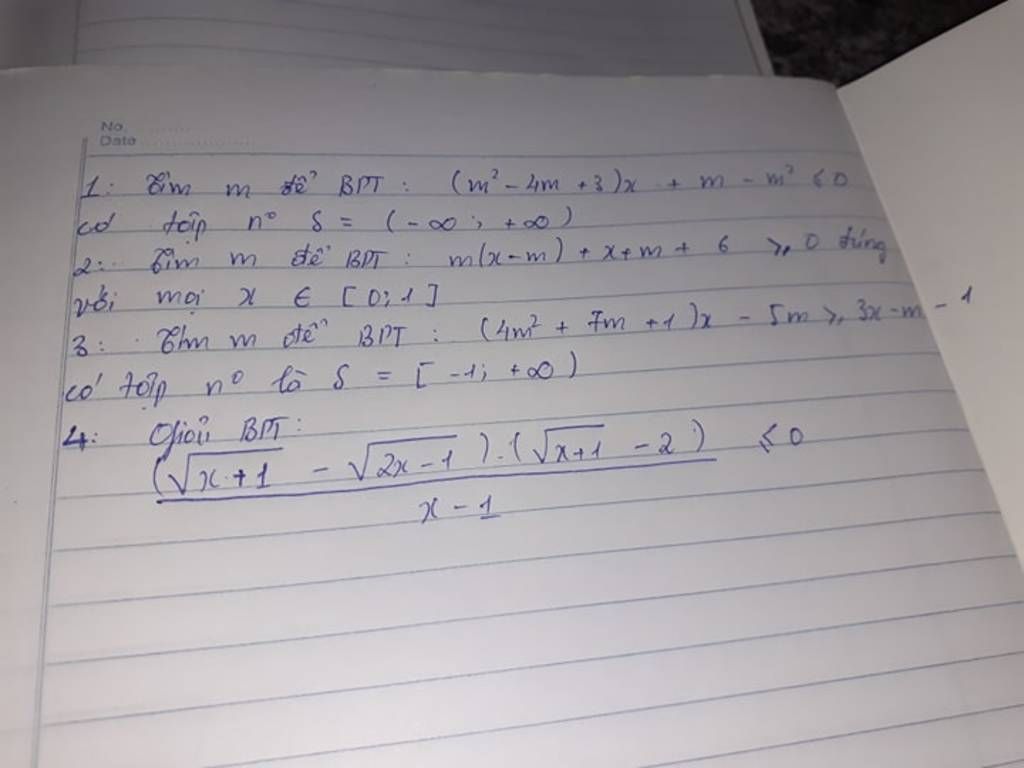 No.
Date
1: Tìm m để BPT : (m² - 4m + 3)x + m - m² ≤ 0
có tập nº S = (-∞; +∞)
2: Tìm m để BPT : m(x-m) + x+m + 6 ≥ 0 đúng
với mọi x ∈ [0;1]
3: Tìm m để BPT : (4m² + 7m + 1)x - 5m ≥ 3x-m - 1
có tập nº là S = [-1; +∞)
4: Giải BPT:
(√(x+1) - √(2x-1)).(√(x+1) - 2) ≤ 0
x - 1